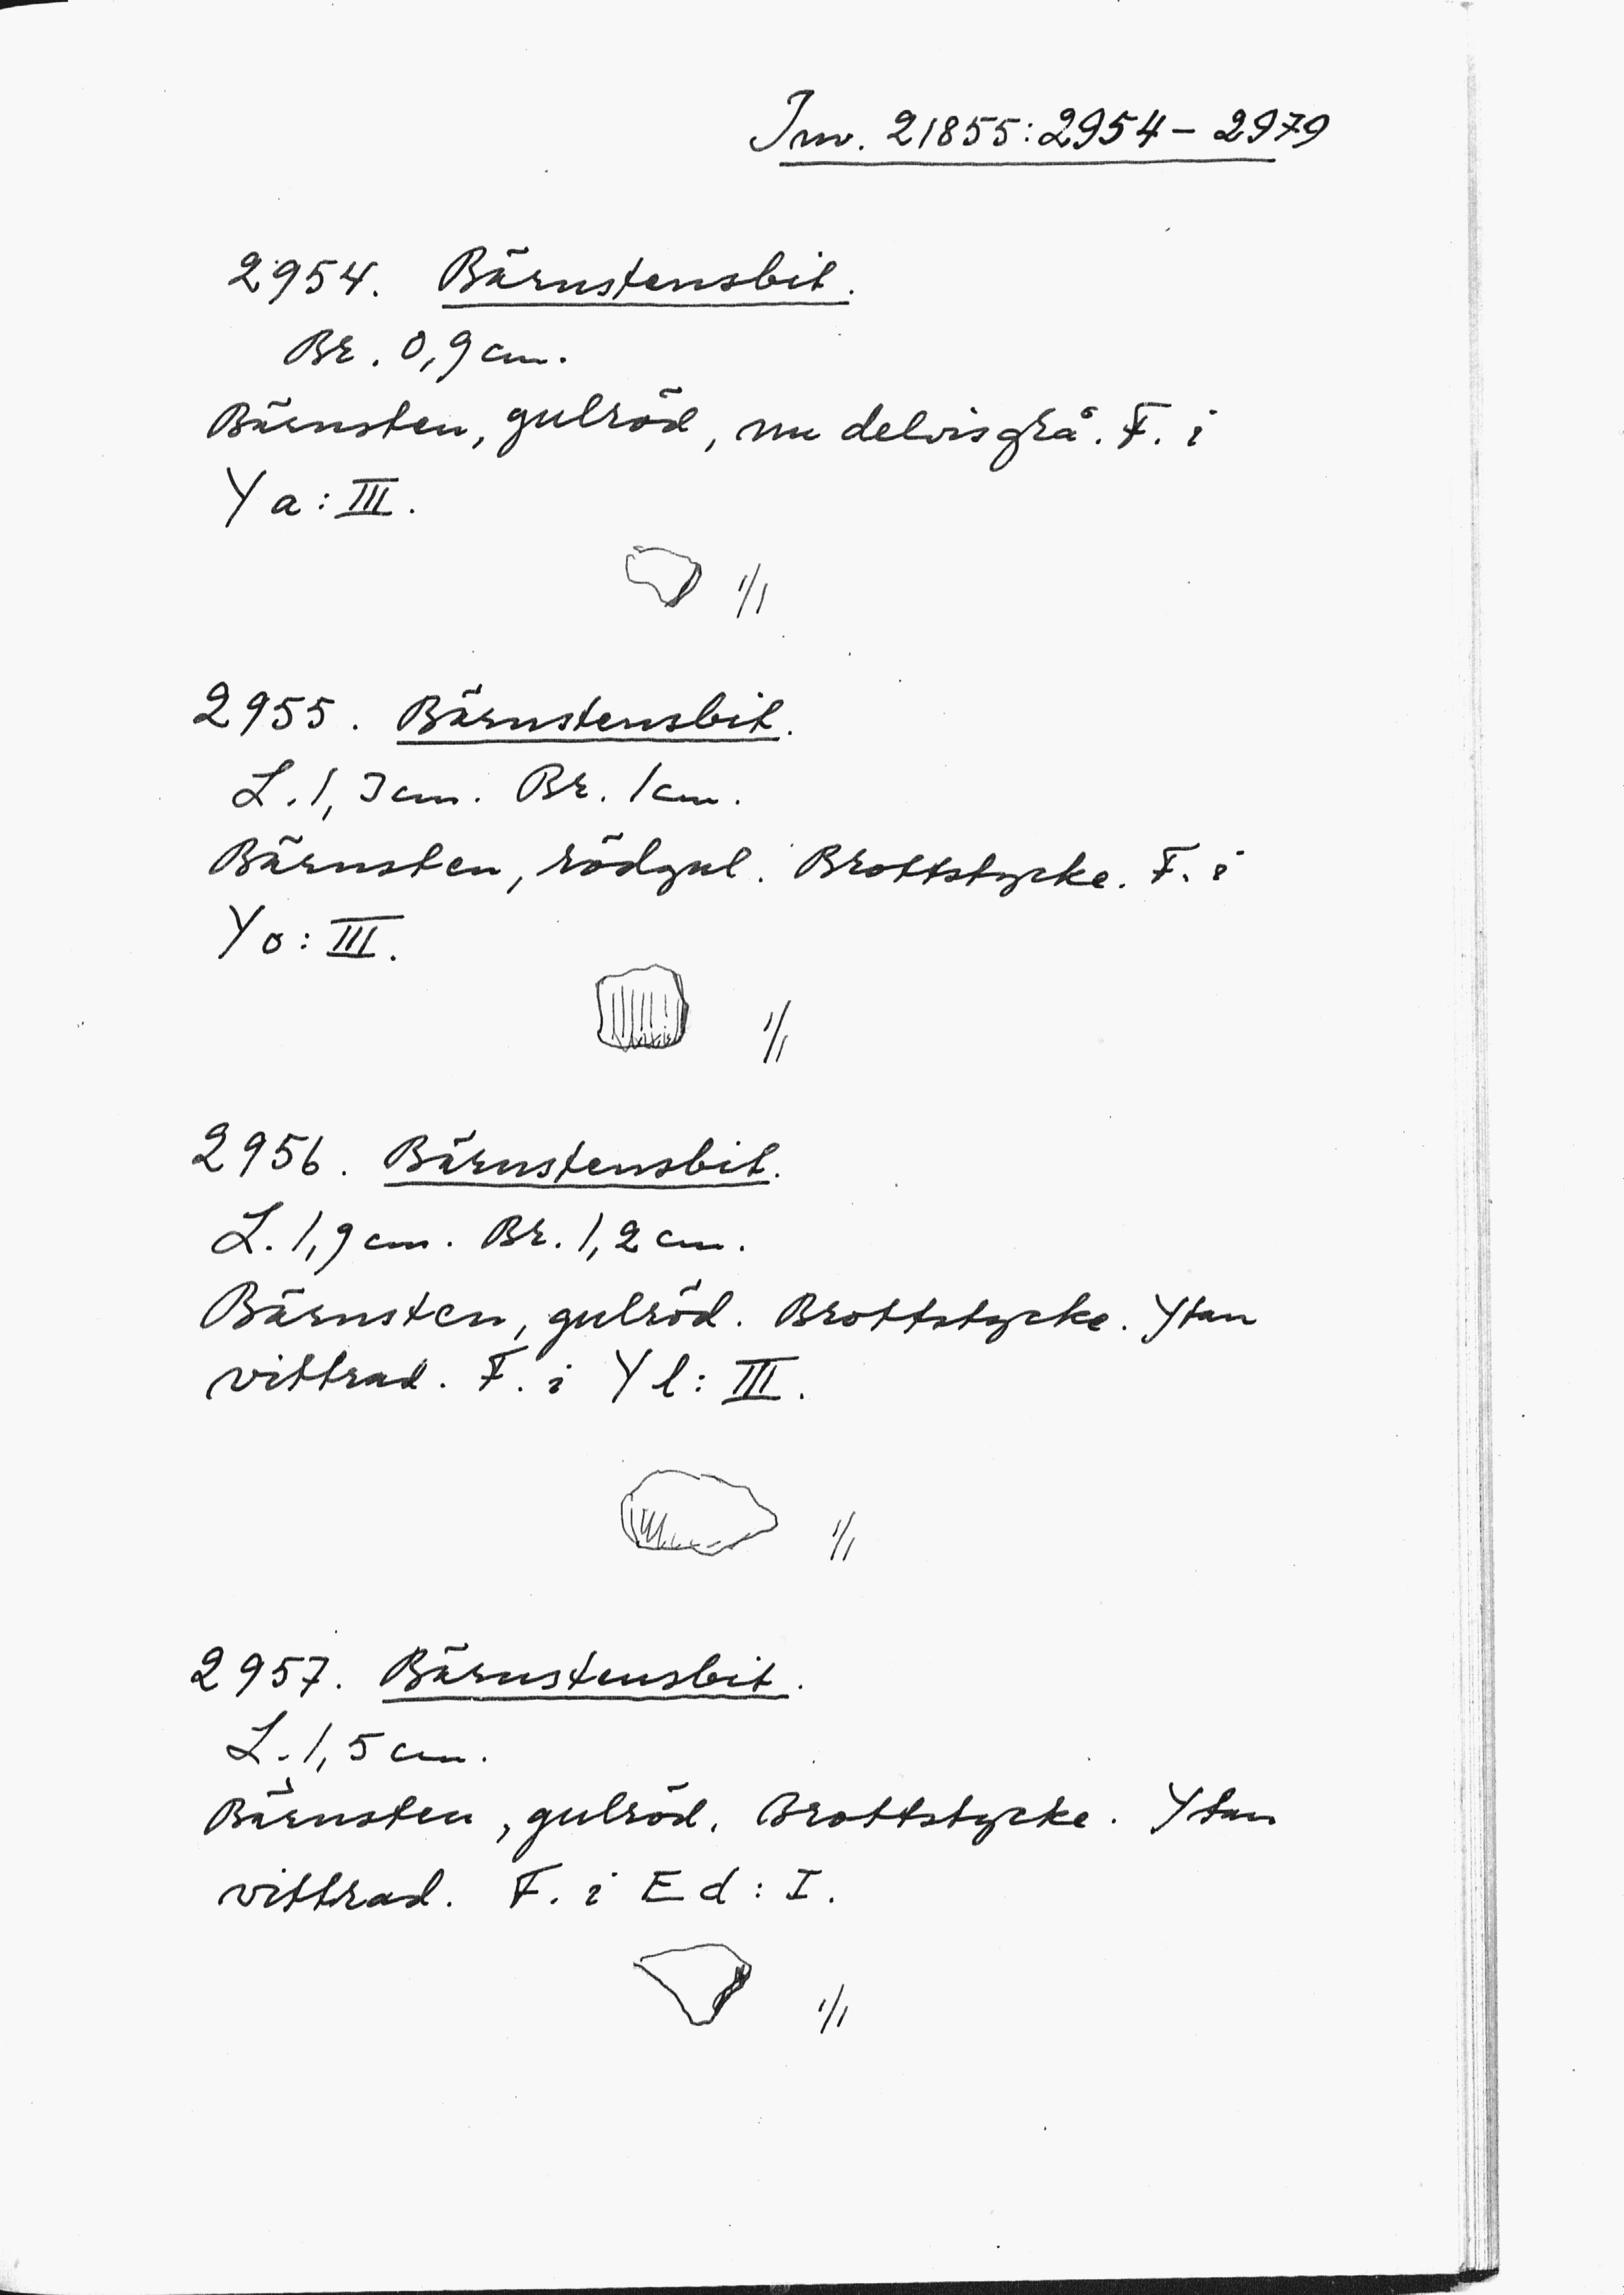 Inv. 21855:2954–2979
2954. Bärnstensbit.
Br. 0,9 cm.
Bärnsten, gulröd, nu delvis grå. F. i
Ya: III.
1/1
2955. Bärnstensbit.
L. 1,3 cm. Br. 1 cm.
Bärnsten, rödgul. Brottstycke. F. i
Yo: III.
1/1
2956. Bärnstensbit.
L. 1,9 cm. Br. 1,2 cm.
Bärnsten, gulröd. Brottstycke. Ytan
vittrad. F. i Yl: III.
1/1
2957. Bärnstensbit.
L. 1,5 cm.
Bärnsten, gulröd. Brottstycke. Ytan
vittrad. F. i Ed: I.
1/1